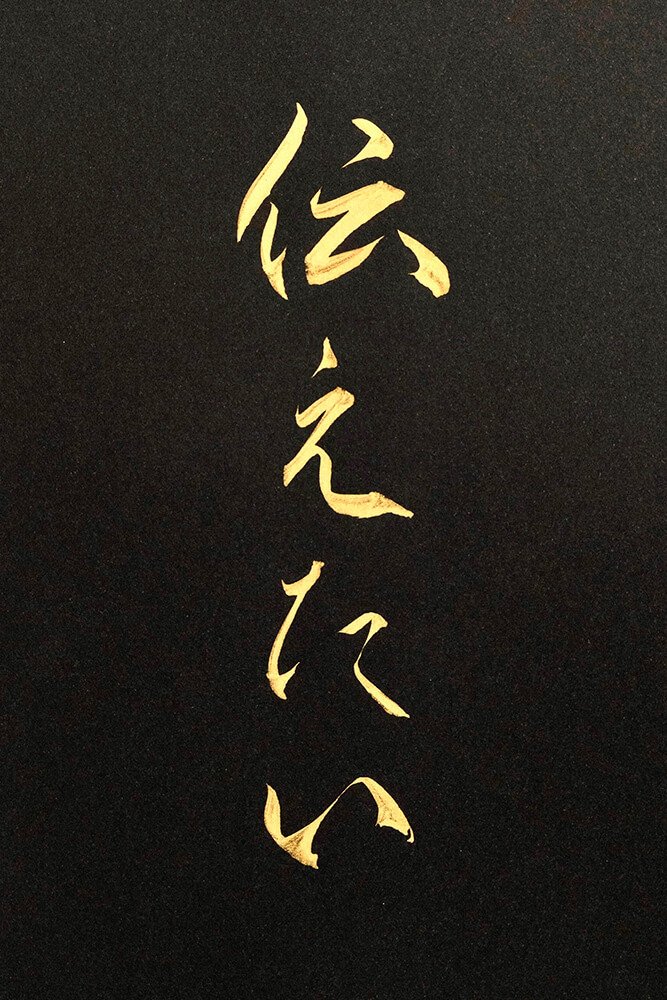 伝えたい